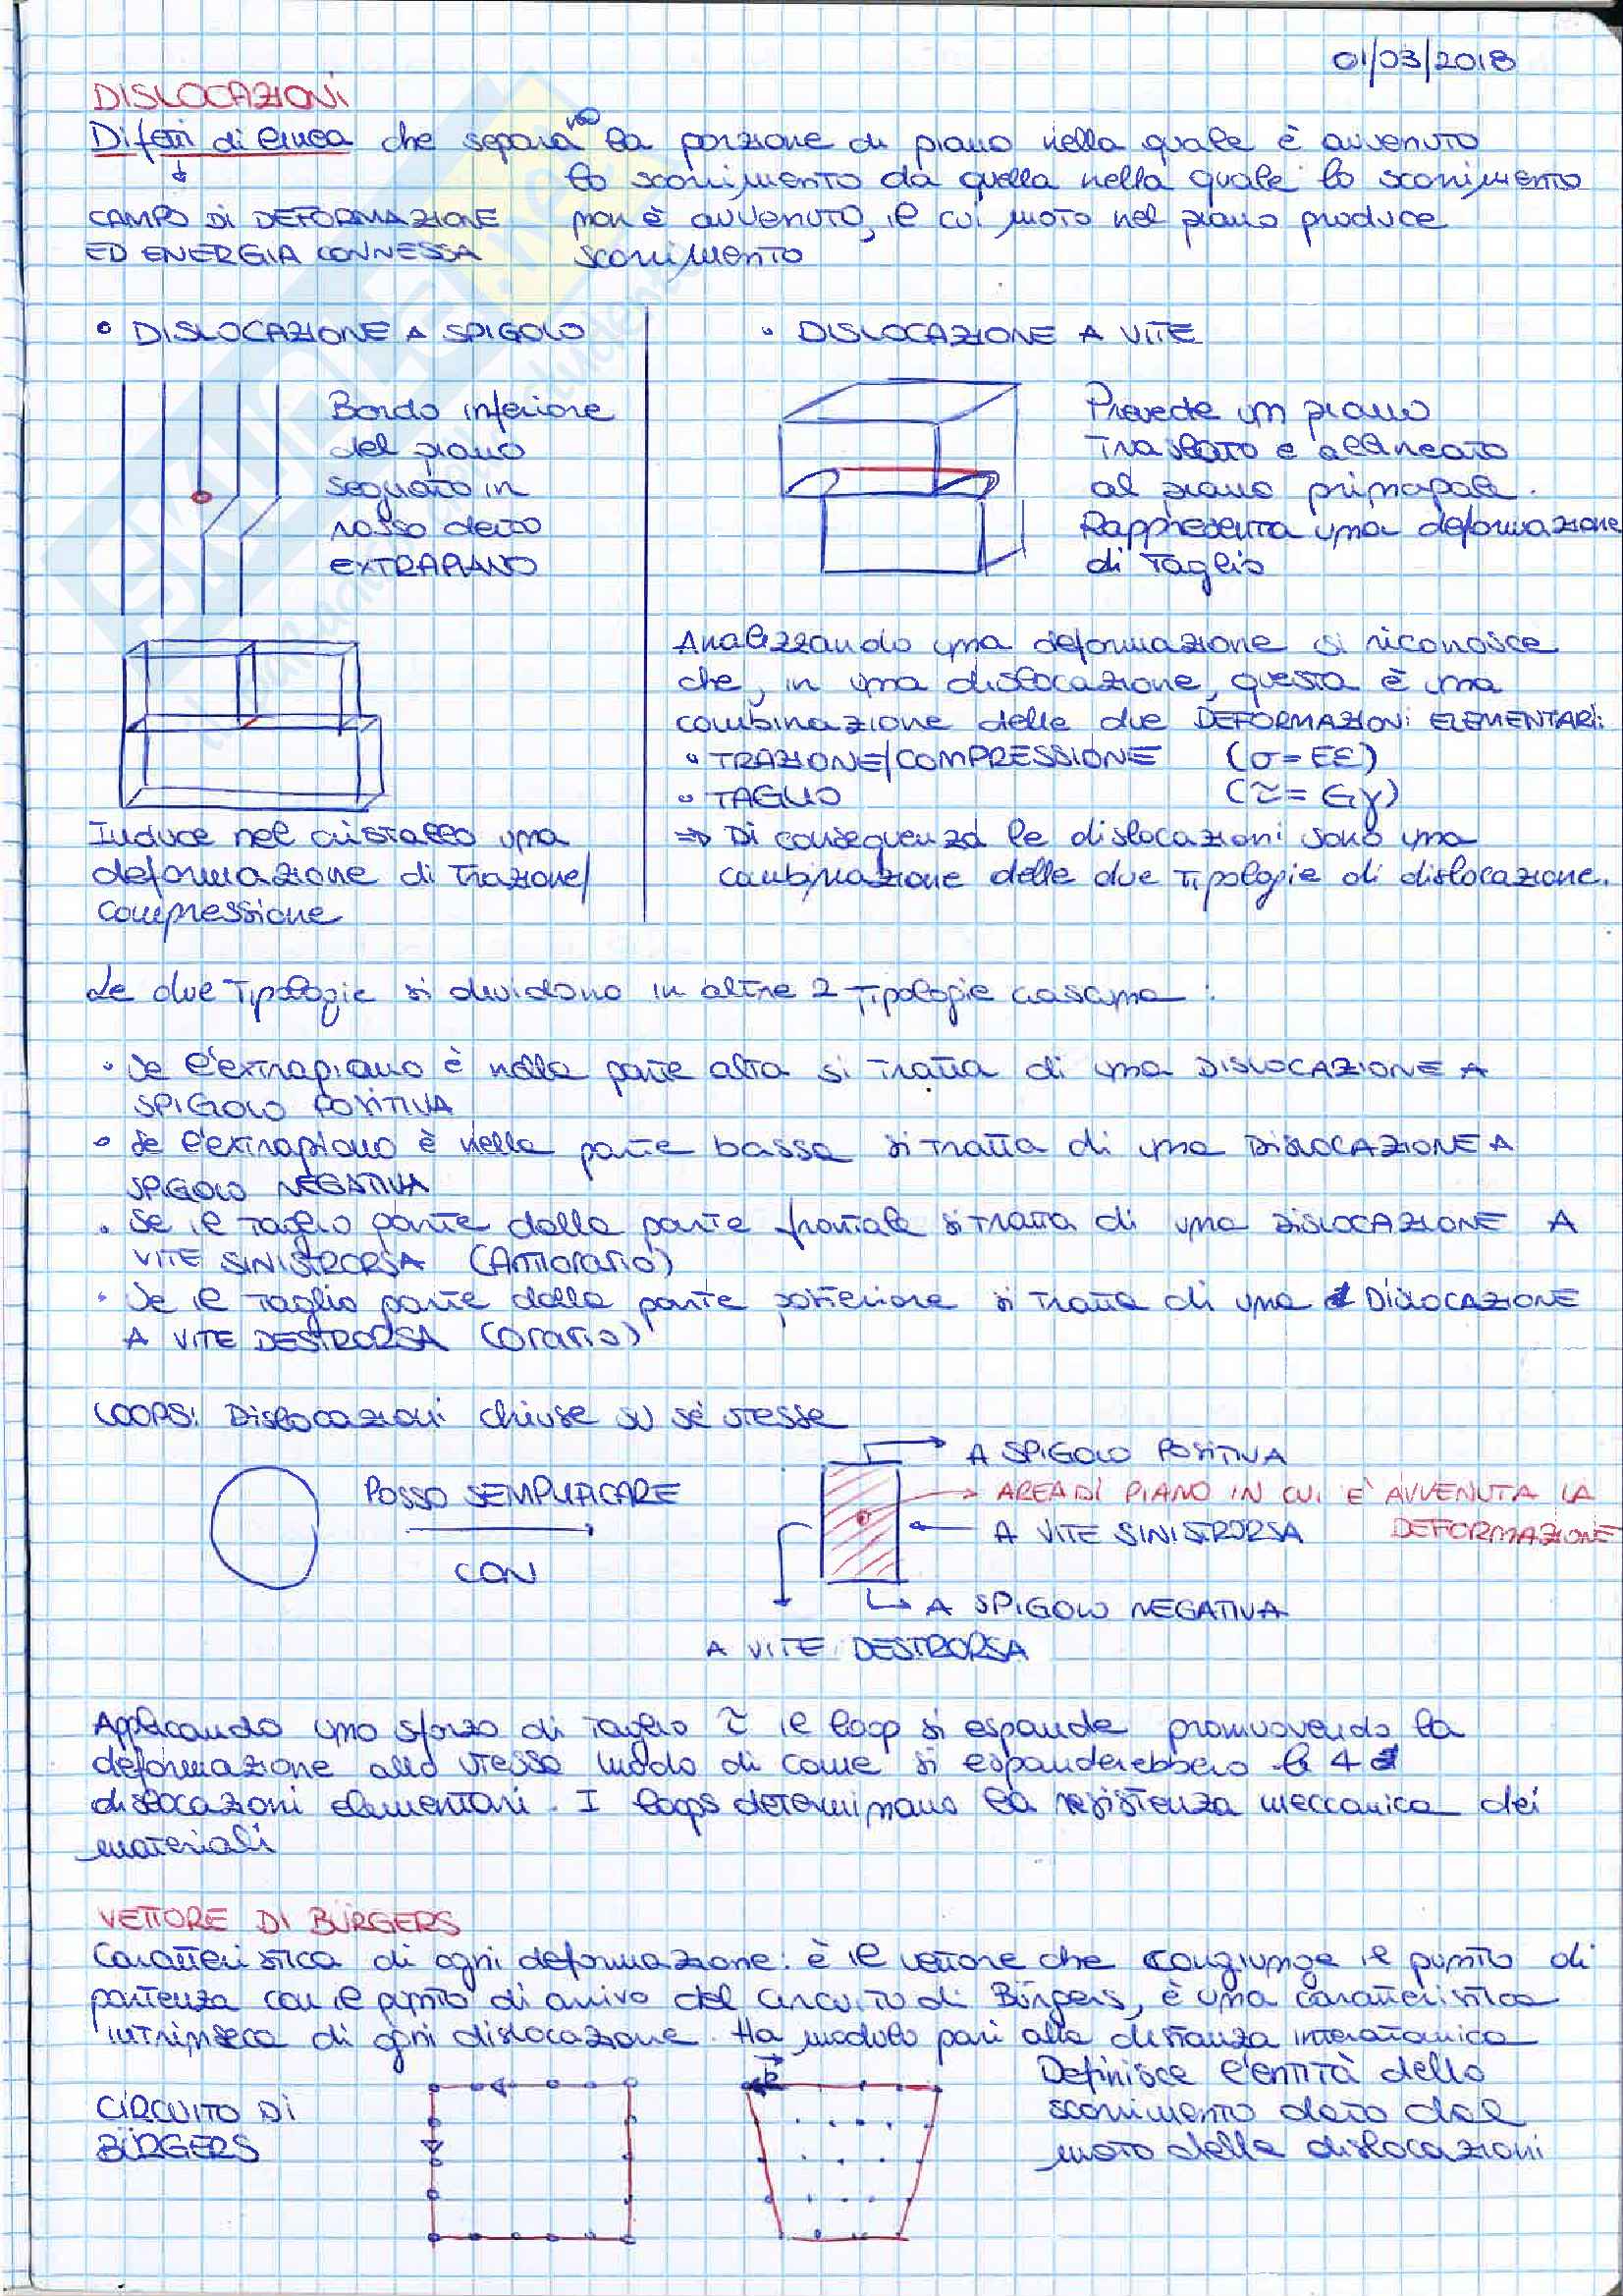 01/03/2018
DISLOCAZIONI
Difetti di linea che separano la porzione di piano nella quale è avvenuto
lo scorrimento da quella nella quale lo scorrimento
non è avvenuto, il cui moto nel piano produce
scorrimento
CAMPO DI DEFORMAZIONE
ED ENERGIA CONNESSA
• DISLOCAZIONE A SPIGOLO
Bordo inferiore
del piano
segnato in
rosso detto
EXTRAPIANO
Induce nel cristallo una
deformazione di trazione/
compressione
• DISLOCAZIONE A VITE
Prevede un piano
traslato e allineato
al piano principale.
Rappresenta una deformazione
di taglio
Analizzando una deformazione si riconosce
che, in una dislocazione, questa è una
combinazione delle due DEFORMAZIONI ELEMENTARI:
• TRAZIONE/COMPRESSIONE (σ=Eε)
• TAGLIO (τ=Gγ)
⇒ Di conseguenza le dislocazioni sono una
combinazione delle due tipologie di dislocazione.
Le due tipologie si dividono in altre 2 tipologie ciascuna:
• Se l'extrapiano è nella parte alta si tratta di una DISLOCAZIONE A
SPIGOLO POSITIVA
• Se l'extrapiano è nella parte bassa si tratta di una DISLOCAZIONE A
SPIGOLO NEGATIVA
• Se il taglio parte dalla parte frontale si tratta di una DISLOCAZIONE A
VITE SINISTRORSA (Antiorario)
• Se il taglio parte dalla parte posteriore si tratta di una DISLOCAZIONE
A VITE DESTRORSA (Orario)
LOOPS: Dislocazioni chiuse su sé stesse
POSSO SEMPLIFICARE
CON
A SPIGOLO POSITIVA
AREA DI PIANO IN CUI E' AVVENUTA LA
DEFORMAZIONE
A VITE SINISTRORSA
A SPIGOLO NEGATIVA
A VITE DESTRORSA
Applicando uno sforzo di taglio τ il loop si espande promuovendo la
deformazione allo stesso modo di come si espanderebbero le 4
dislocazioni elementari. I loops determinano la resistenza meccanica dei
materiali
VETTORE DI BÜRGERS
Caratteristica di ogni deformazione: è il vettore che congiunge il punto di
partenza con il punto di arrivo del circuito di Bürgers, è una caratteristica
intrinseca di ogni dislocazione. Ha modulo pari alla distanza interatomica
CIRCUITO DI
BÜRGERS
b
Definisce l'entità dello
scorrimento dato dal
moto della dislocazioni